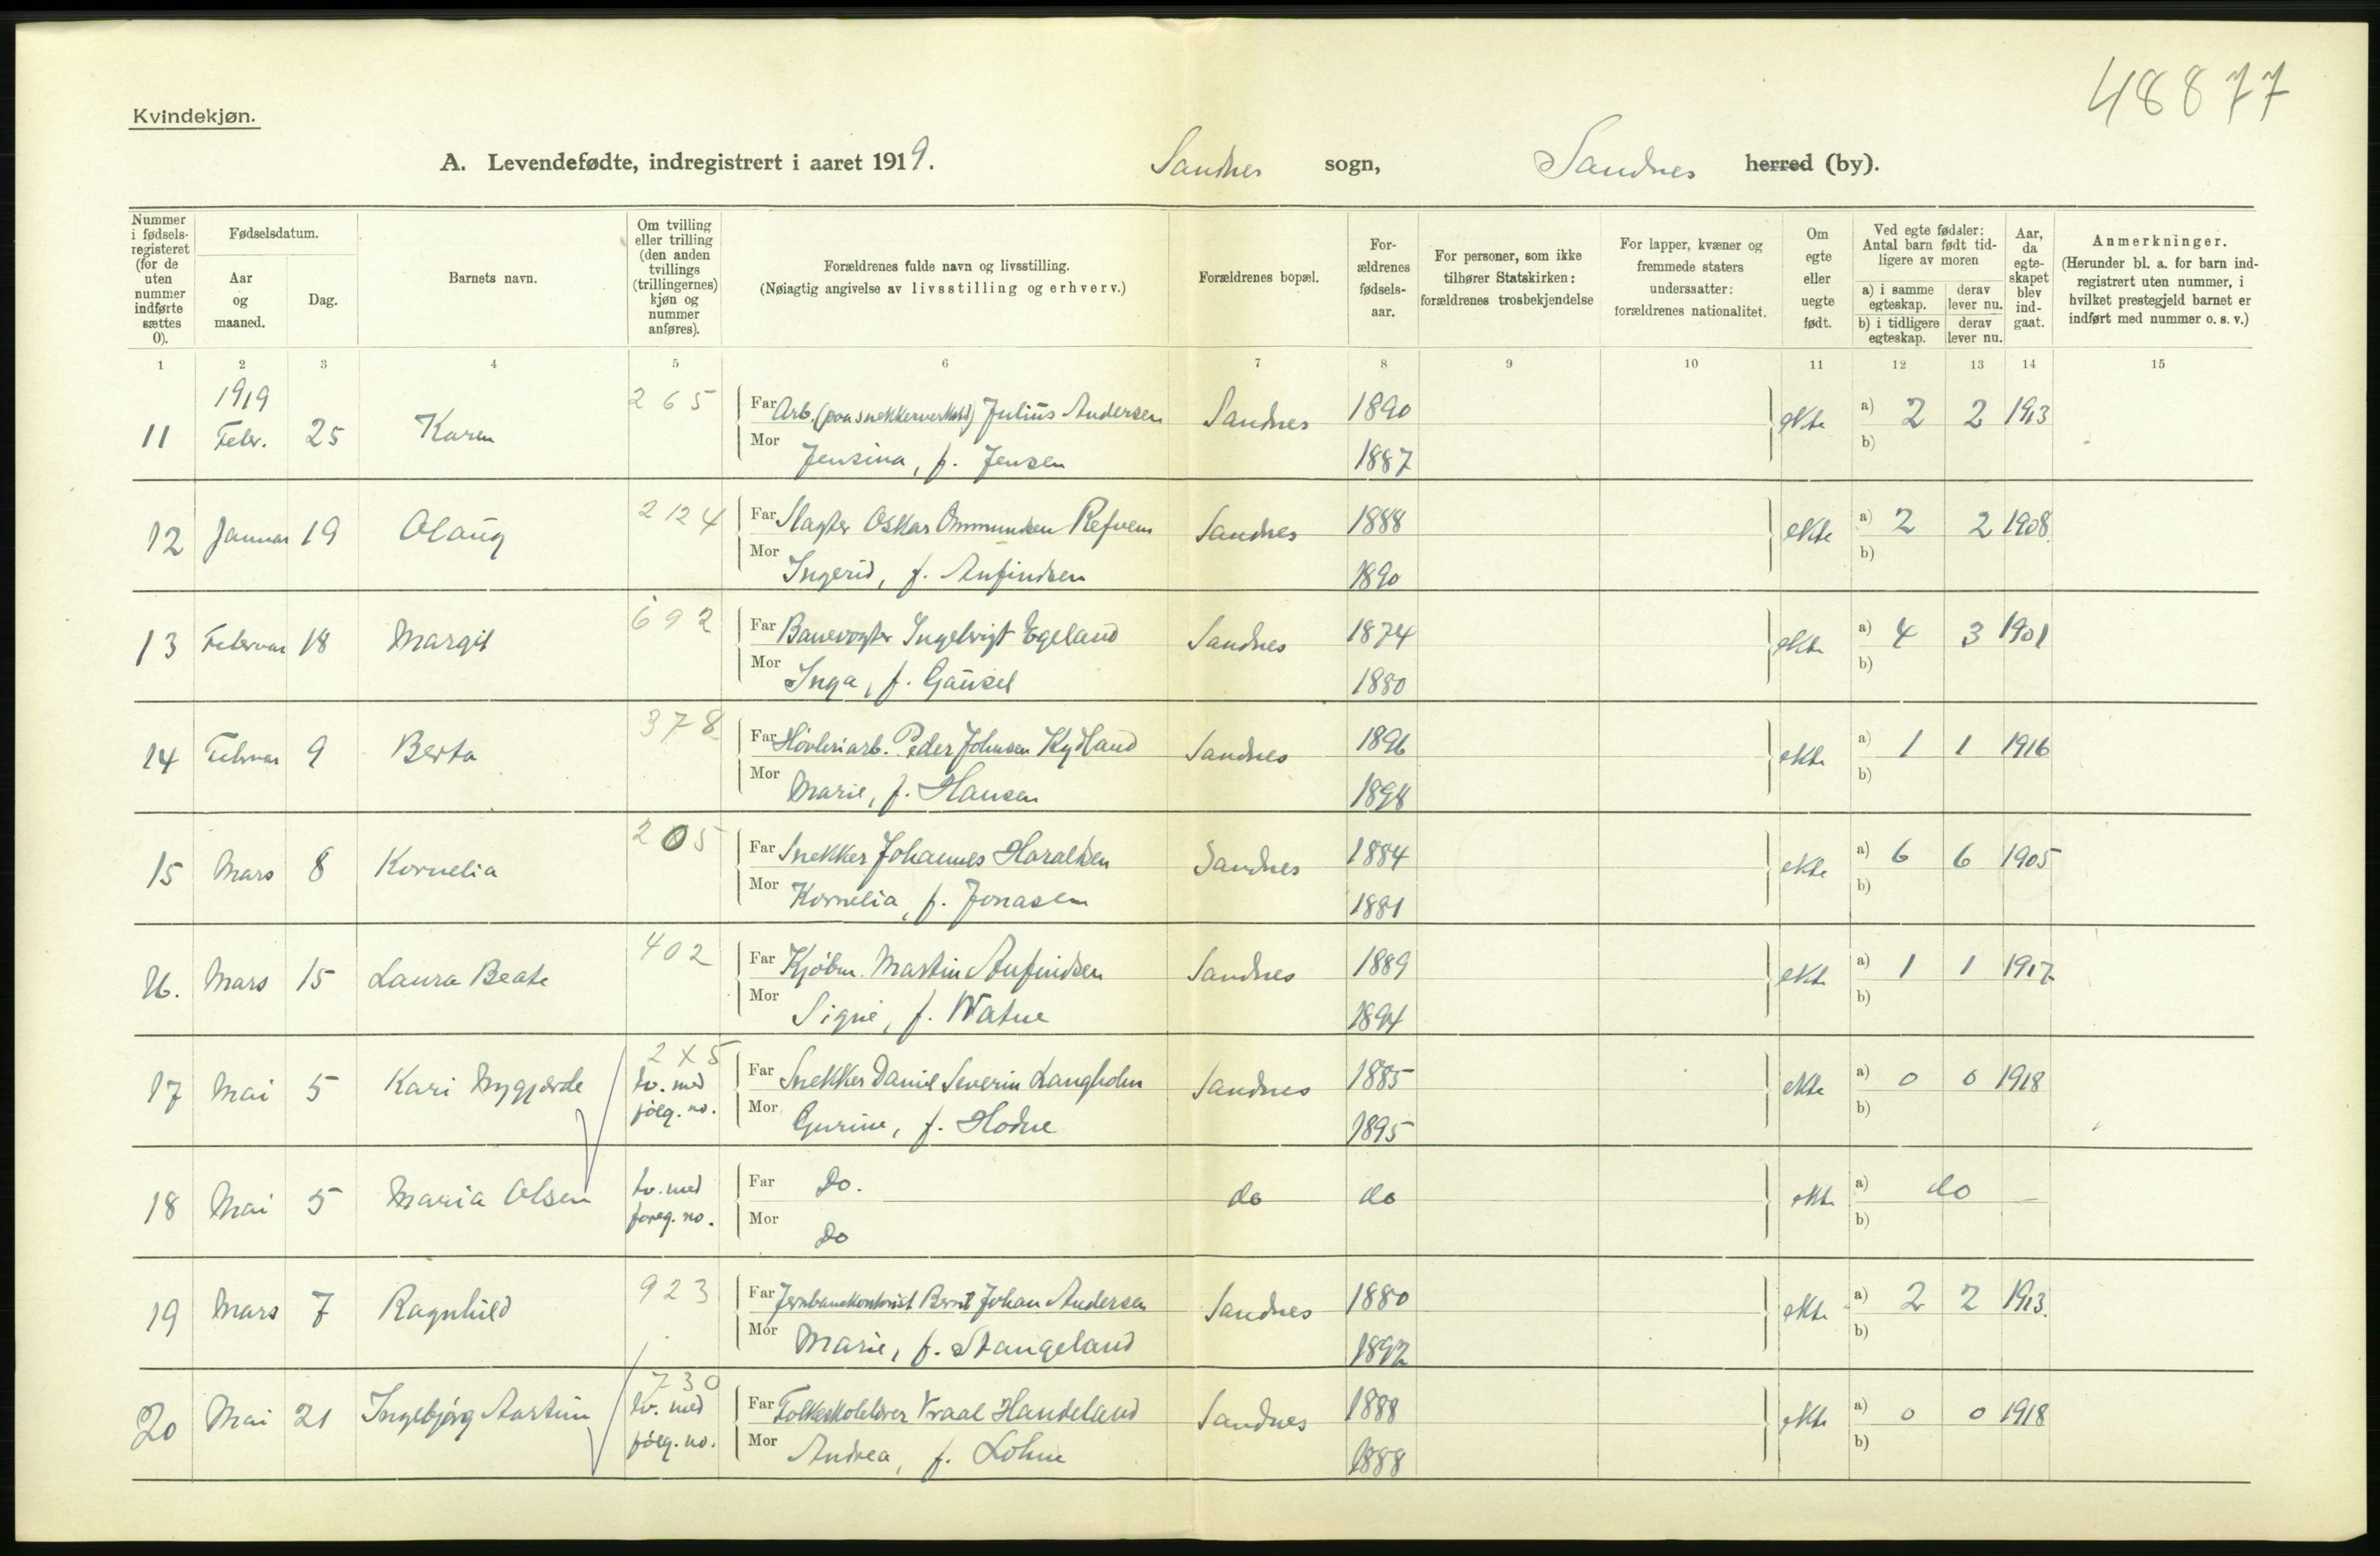 48877
Kvindekjøn.
A. Levendefødte, indregistrert i aaret 1919. Sandnes sogn, Sandnes herred (by).
Nummer i fødselsregisteret (for de uten nummer indførte sættes 0).
Fødselsdatum.
Aar og maaned.
Dag.
Barnets navn.
Om tvilling eller trilling (den anden tvillings (trillingernes) kjøn og nummer anføres).
Forældrenes fulde navn og livsstilling.
(Nøiagtig angivelse av livsstilling og erhverv.)
Forældrenes bopæl.
Forældrenes fødselsaar.
For personer, som ikke tilhører Statskirken: forældrenes trosbekjendelse
For lapper, kvæner og fremmede staters undersaatter: forældrenes nationalitet.
Om egte eller uegte født.
Ved egte fødsler: Antal barn født tidligere av moren
a) i samme egteskap. derav lever nu.
b) i tidligere egteskap. derav lever nu.
Aar, da egteskapet blev indgaat.
Anmerkninger.
(Herunder bl. a. for barn indregistrert uten nummer, i hvilket prestegjeld barnet er indført med nummer o. s. v.)
1 2 3 4 5 6 7 8 9 10 11 12 13 14 15
1919 265 Far Arb. (paa snekkerverksted) Julius Andersen Sandnes 1890
11 Febr. 25 Karen ekte a) 2 2 1913
Mor Jensina, f. Jensen 1887 b)
2124 Far Slagter Oskar Ommundsen Refvem Sandnes 1888
12 Januar 19 Olaug ekte a) 2 2 1908.
Mor Ingerid, f. Anfindsen 1890 b)
692 Far Banevogter Ingebrigt Egeland Sandnes 1874
13 Februar 18 Margit ekte a) 4 3 1901
Mor Inga, f. Gausel 1880 b)
378 Far Høvleriarb. Peder Johnsen Kydland Sandnes 1896
14 Februar 9 Berta ekte a) 1 1 1916
Mor Marie, f. Hansen 1898 b)
205 Far Snekker Johannes Haraldsen Sandnes 1884
15 Mars 8 Kornelia ekte a) 6 6 1905
Mor Kornelia, f. Jonasen 1881 b)
402 Far Kjøbm. Martin Anfindsen Sandnes 1889
16. Mars 15 Laura Beate ekte a) 1 1 1917
Mor Signe, f. Watne 1894 b)
2x5 Far Snekker Daniel Severin Langholm Sandnes 1885
17 Mai 5 Kari Nygjærde tv. med følg. no. ekte a) 0 0 1918
Mor Gurine, f. Hodne 1895 b)
Far Do. do do
18 Mai 5 Maria Olsen tv. med foreg. no. ekte a) do
Mor Do b)
923 Far Jernbanekontorist Bernt Johan Andersen Sandnes 1880
19 Mars 7 Ragnhild ekte a) 2 2 1913.
Mor Marie, f. Stangeland 1892 b)
730 Far Folkeskolelærer Vraal Handeland Sandnes 1888
20 Mai 21 Ingebjørg Aastun tv. med følg. no. ekte a) 0 0 1918
Mor Andrea, f. Lohne 1888 b)